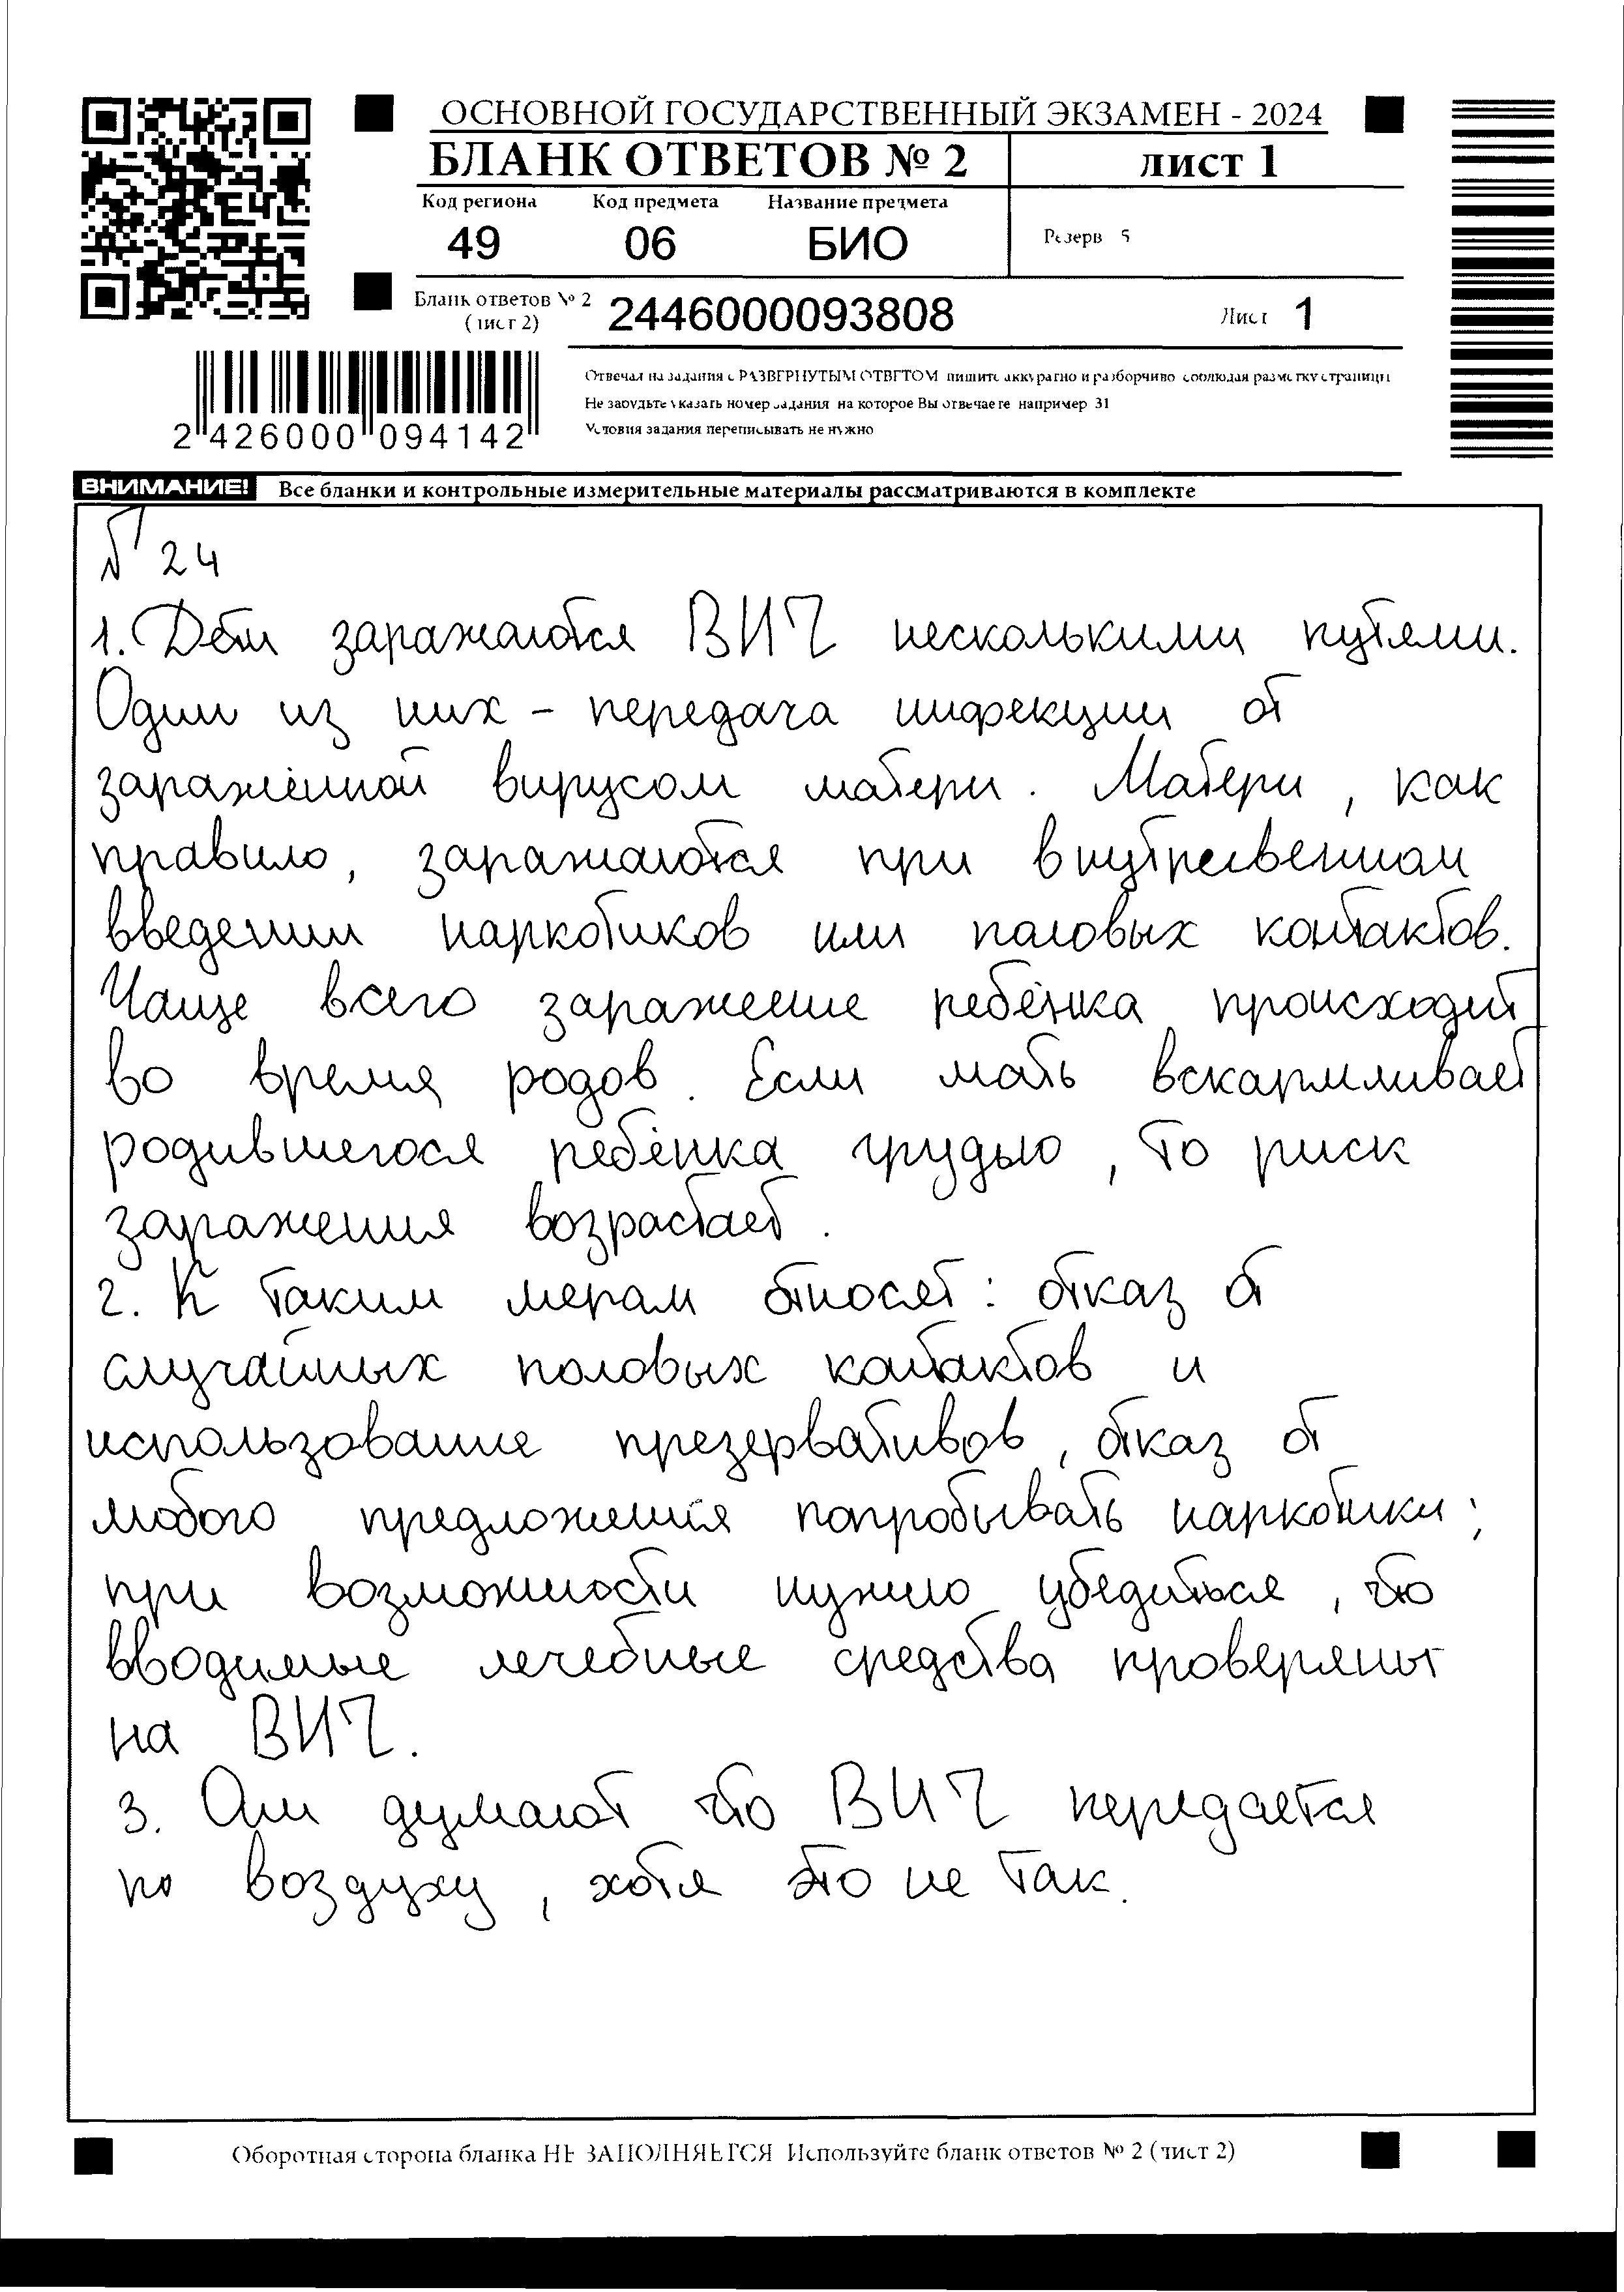 ОСНОВНОЙ ГОСУДАРСТВЕННЫЙ ЭКЗАМЕН - 2024
БЛАНК ОТВЕТОВ № 2
лист 1
Код региона Код предмета Название предмета
49 06 БИО
Резерв 5
Бланк ответов № 2
(лист 2)
2446000093808
Лист 1
2 426000 094142
Отвечая на задания с РАЗВЕРНУТЫМ ОТВЕТОМ пишите аккуратно и разборчиво соблюдая разметку страницы
Не забудьте указать номер задания на которое Вы отвечаете например 31
Условия задания переписывать не нужно
ВНИМАНИЕ! Все бланки и контрольные измерительные материалы рассматриваются в комплекте
№ 24
1. Дети заражаются ВИЧ несколькими путями.
Один из них - передача инфекции от
заражённой вирусом матери. Матери, как
правило, заражаются при внутривенном
введении наркотиков или половых контактов.
Чаще всего заражение ребёнка происходит
во время родов. Если мать вскармливает
родившегося ребёнка грудью, то риск
заражения возрастает.
2. К таким мерам относят: отказ от
случайных половых контактов и
использование презервативов, отказ от
любого предложения попробывать наркотики;
при возможности нужно убедиться, что
вводимые лечебные средства проверены
на ВИЧ.
3. Они думают что ВИЧ передается
по воздуху, хотя это не так.
Оборотная сторона бланка НЕ ЗАПОЛНЯЕТСЯ Используйте бланк ответов № 2 (лист 2)